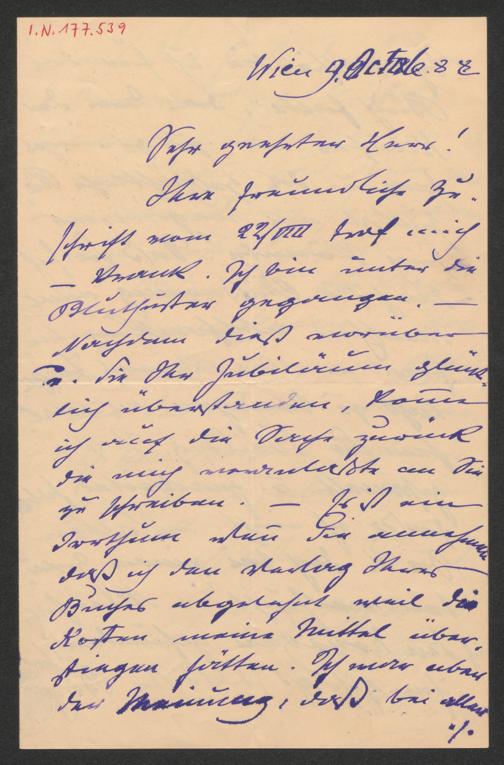 I.N. 177.539
Wien 9. Octobe. 88
Sehr geehrter Herr!
Ihre freundliche Zu-
schrift vom 22/VIII traf mich
– krank. Ich bin unter die
Bluthuster gegangen. –
Nachdem dieß vorüber
u. Sie Ihr Jubiläum glück-
lich überstanden, komme
ich auf die Sache zurück
die mich veranlaßte an Sie
zu schreiben. – Es ist ein
Irrthum wenn Sie annehmen
daß ich den Verlag Ihres
Buches abgelehnt weil die
Kosten meine Mittel über-
stiegen hätten. Ich war aber
der Meinung, daß bei aller
./.